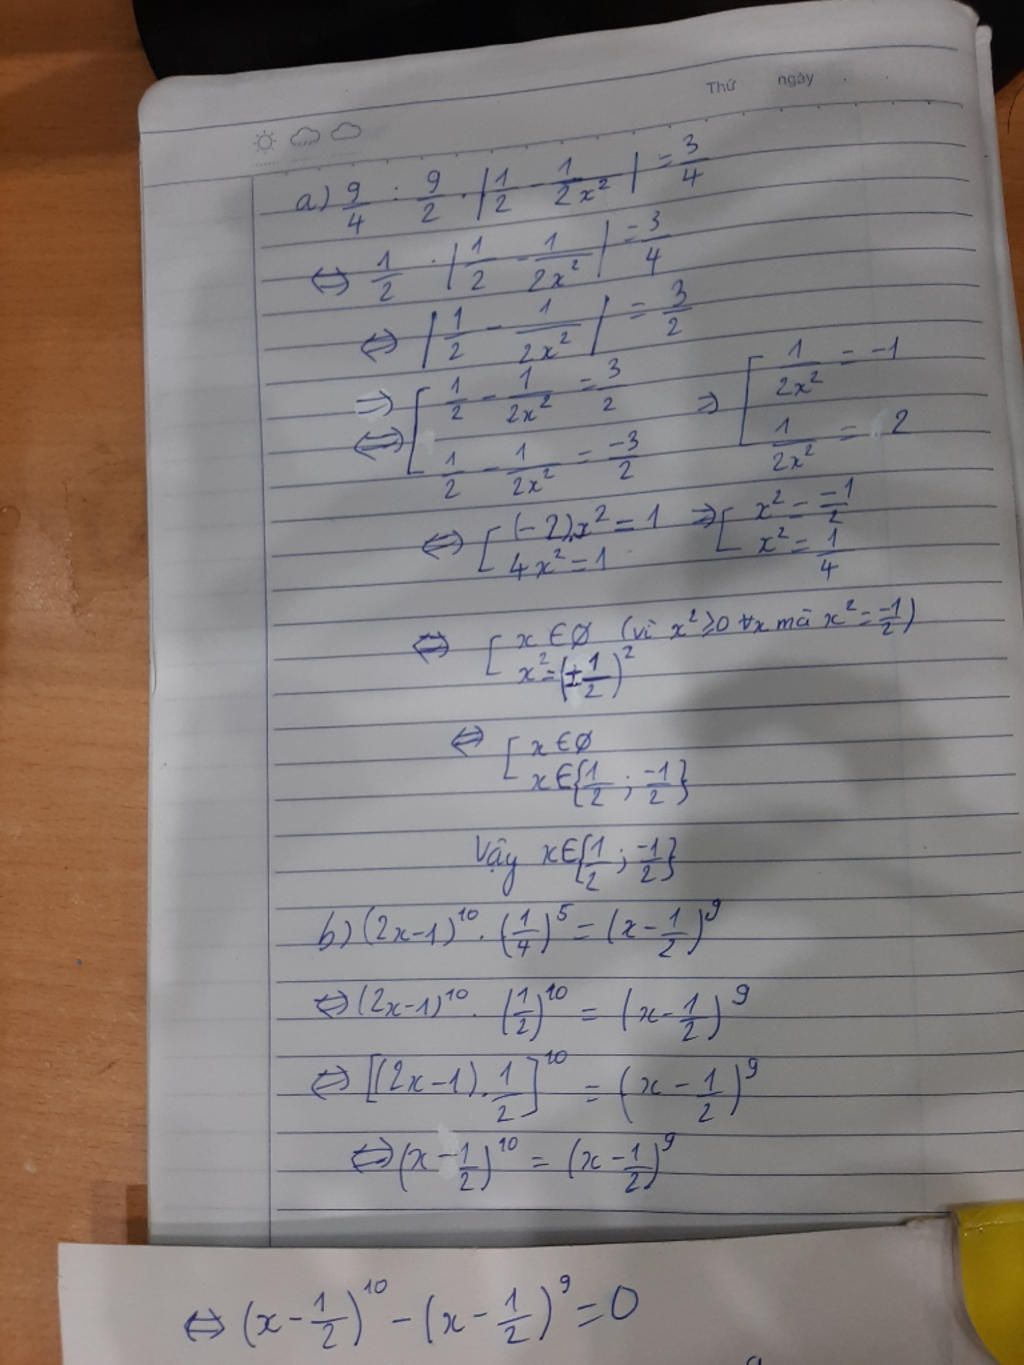 Thứ ngày
a) 9/4 : 9/2 · |1/2 - 1/2x²| = 3/4
⇔ 1/2 · |1/2 - 1/2x²| = 3/4
⇔ |1/2 - 1/2x²| = 3/2
⇒ [ 1/2 - 1/2x² = 3/2 ⇒ [ 1/2x² = -1
⇔ 1/2 - 1/2x² = -3/2 1/2x² = 2
⇔ [ (-2).x² = 1 ⇒ [ x² = -1/2
4x² = 1 x² = 1/4
⇔ [ x ∈ ∅ (vì x² ≥ 0 ∀x mà x² = -1/2)
x² = (±1/2)²
⇔ [ x ∈ ∅
x ∈ {1/2 ; -1/2}
Vậy x ∈ {1/2 ; -1/2}
b) (2x-1)¹⁰ . (1/4)⁵ = (x - 1/2)⁹
⇔ (2x-1)¹⁰ . (1/2)¹⁰ = (x - 1/2)⁹
⇔ [(2x-1).1/2]¹⁰ = (x - 1/2)⁹
⇔ (x - 1/2)¹⁰ = (x - 1/2)⁹
⇔ (x - 1/2)¹⁰ - (x - 1/2)⁹ = 0